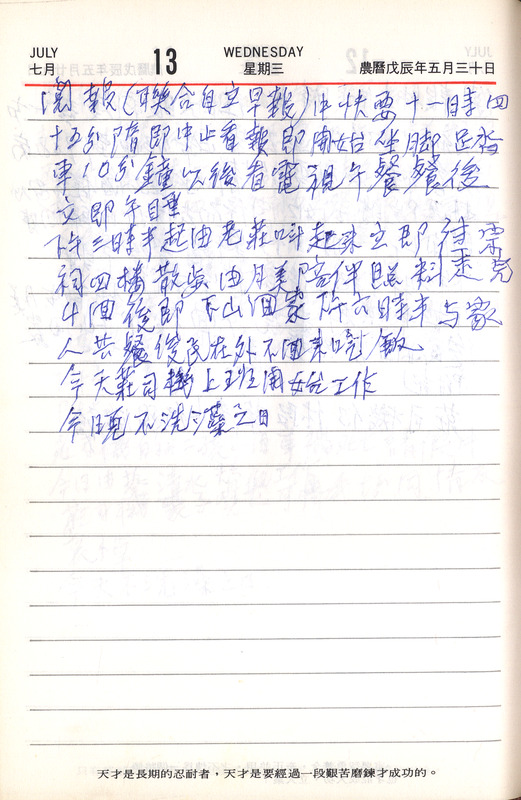 JULY
七月
13
WEDNESDAY
星期三
農曆戊辰年五月三十日
報(聯合自立早報)中快要十一時四
十五分隋即中止看報即開始坐脚足踏
車10分鐘以後看電視午餐餐後
立即午睡
下午三時半起由尾莊叫起來立即往宗
祠四樓散步由月美陪伴照料走完
4回後即下山回家下午六時半与家
人共餐俊民在外不回来曉敏
今天莊司機上班開始工作
今晚不洗澡之日
天才是長期的忍耐者,天才是要經過一段艱苦磨鍊才成功的。